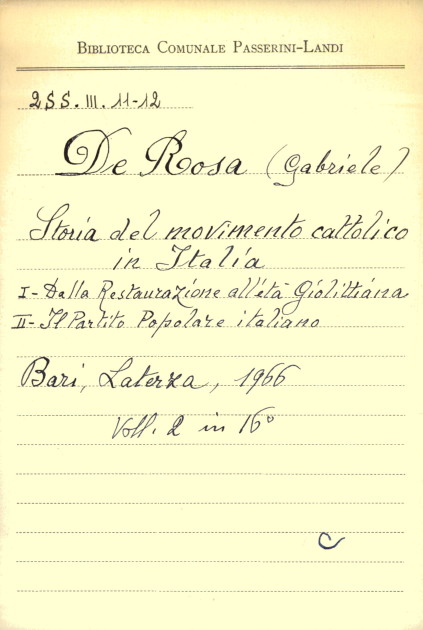 BIBLIOTECA COMUNALE PASSERINI-LANDI
2SS. III. 11-12
De Rosa (Gabriele)
Storia del movimento cattolico
in Italia
I- Dalla Restaurazione all'età Giolittiana
II- Il Partito Popolare italiano
Bari, Laterza, 1966
Voll. 2 in 16°
C